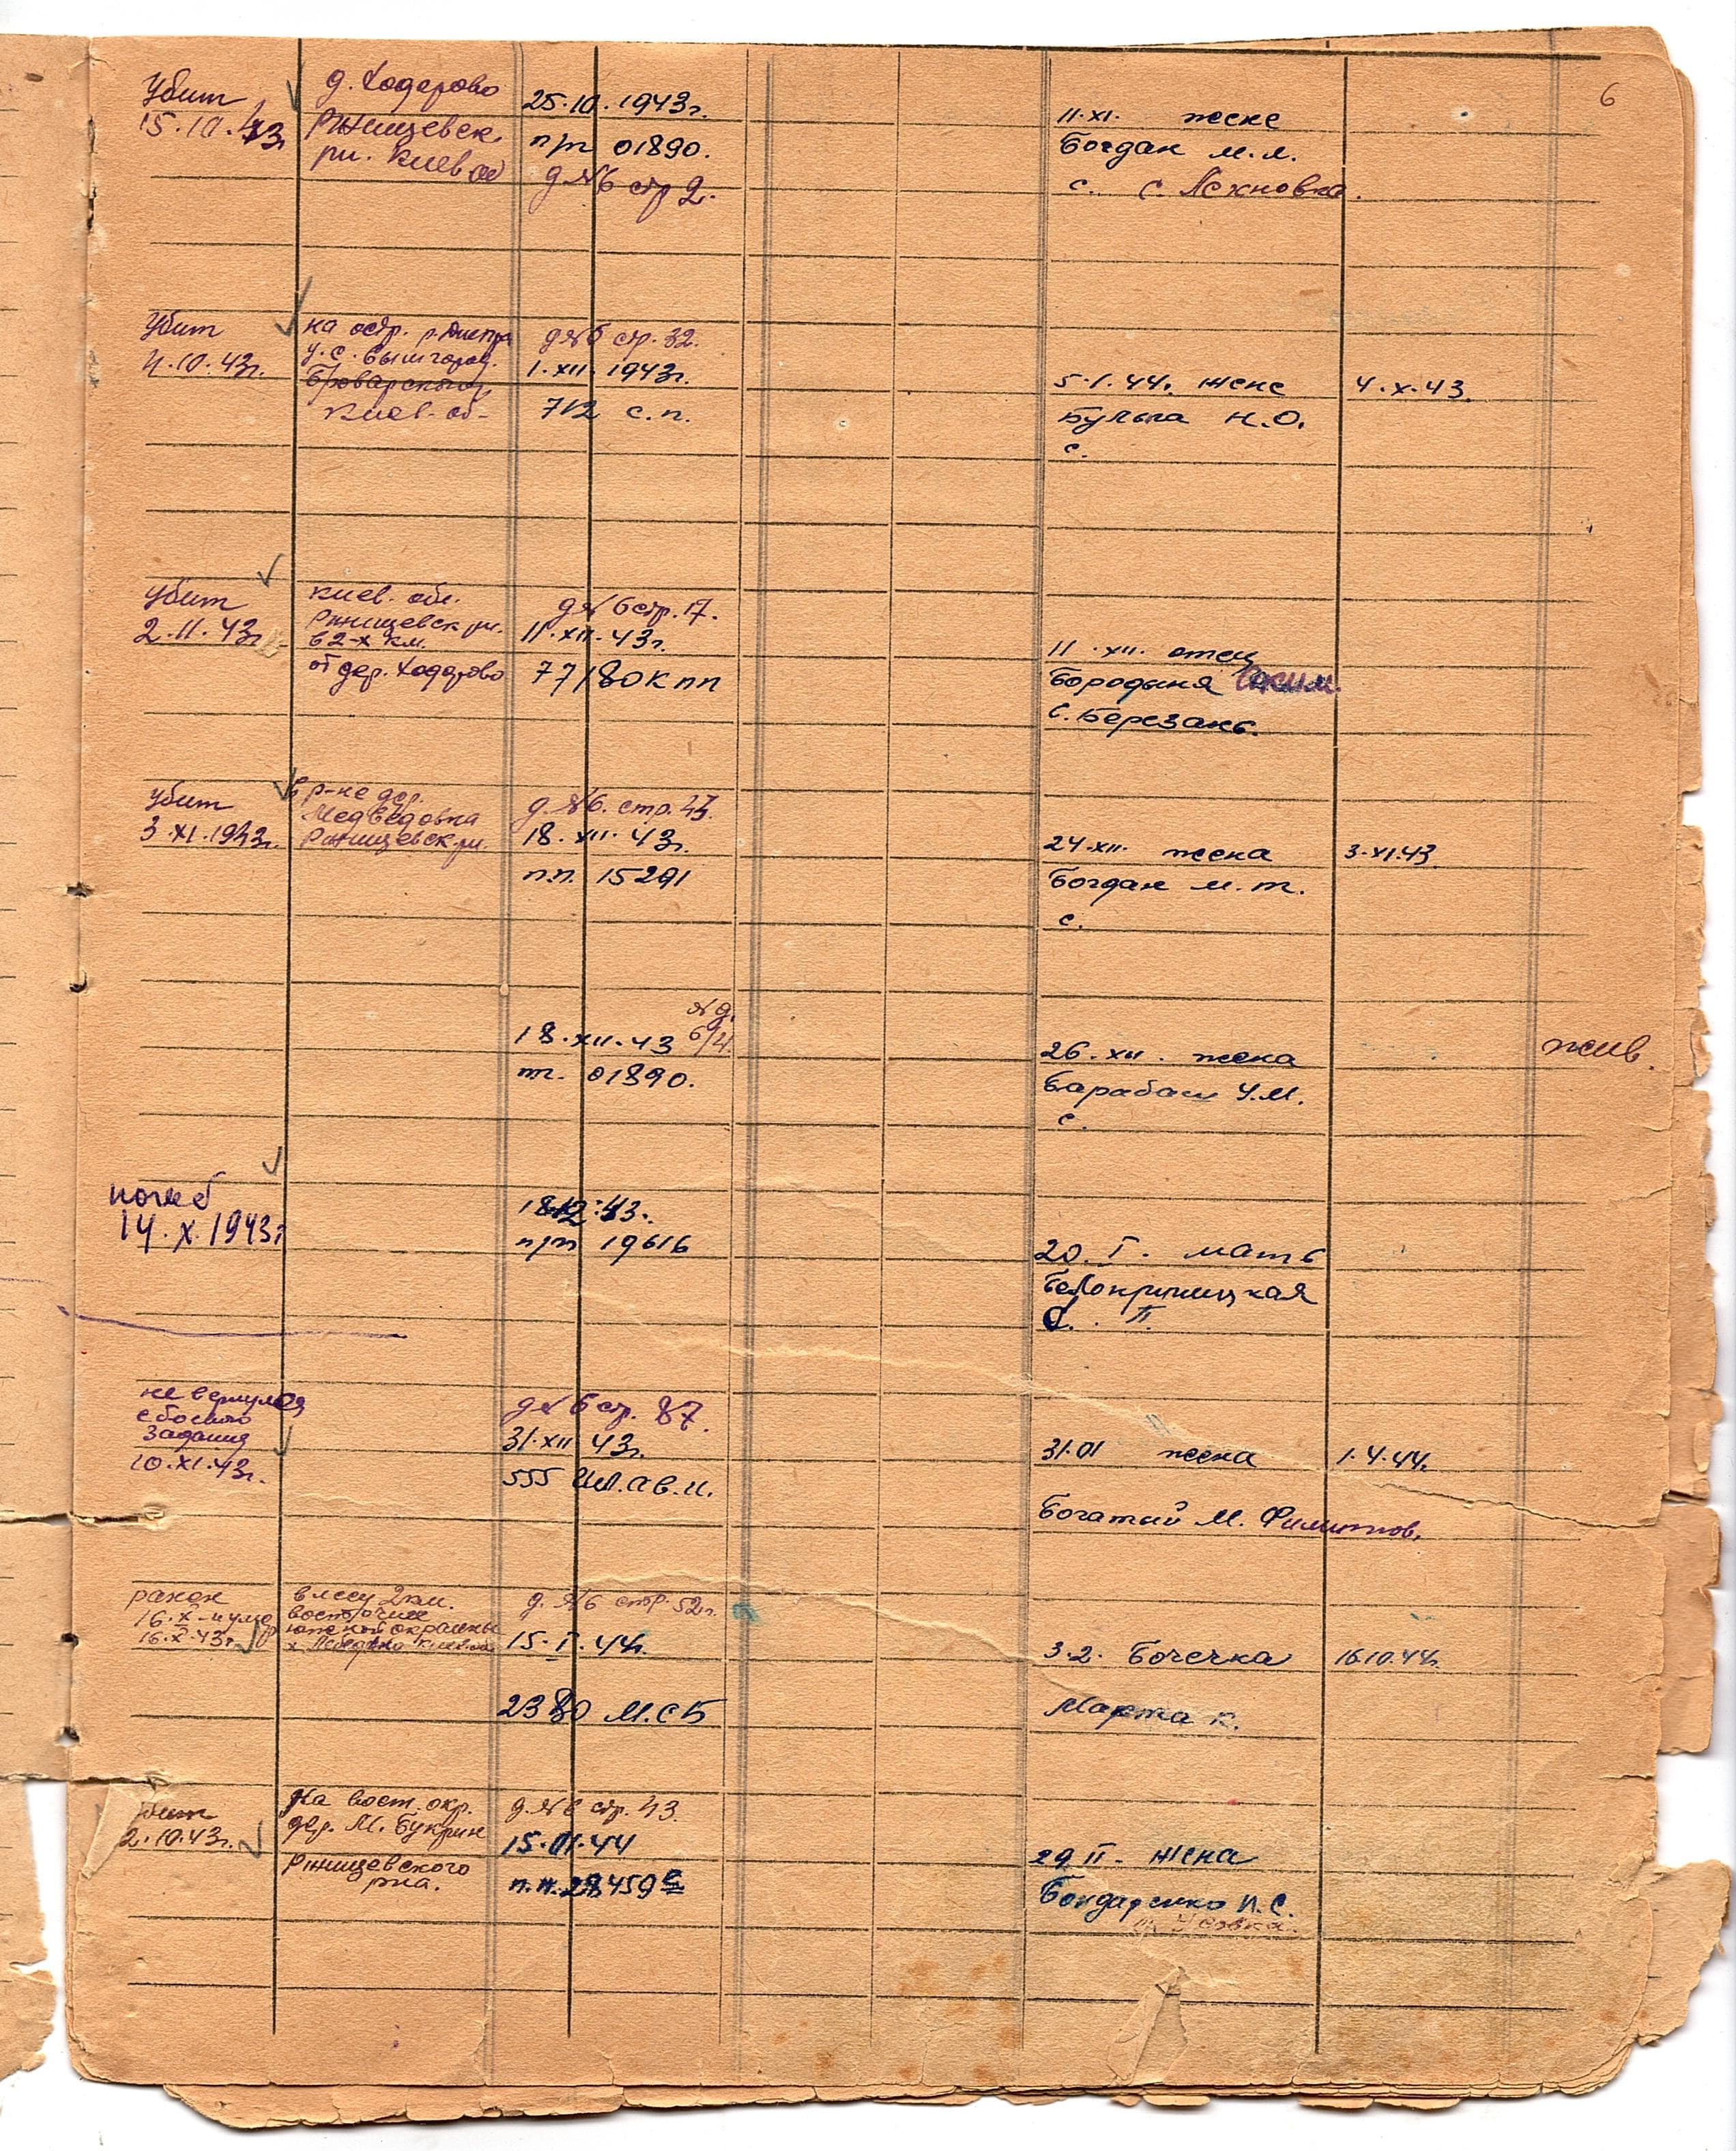 6
Убит
15.10.43г
д. Ходорово
Ржищевск.
рн. Киев об
25.10.1943г.
п/п 01890.
д №6 стр 2.
11.XI. жене
Богдан М.Л.
с. с. Лехновка.
Убит
4.10.43г.
на остр. р. Днепр
у с. Вышгород.
Броварского
Киев. об-
д №6 стр. 32.
1.XII.1943г.
712 с.п.
5.1.44. жене
Булыга Н.О.
с.
4.X.43.
Убит
2.11.43г
Киев. обл.
Ржищевск рн.
в 2-х км.
от дер. Ходорово
д № 6 стр. 17.
11.XII.43г.
77180К пп
11.XII. отец
Бородыня
С. Березань.
Убит
3.XI.1943г.
в р-не дер.
Медведовка
Ржищевск. рн.
д. №6. стр. 47.
18.XII.43г.
п.п. 15291
24.XII. жена
Богдан М.Т.
с.
3.XI.43.
№ д.
6/4
18.XII.43
пп. 01890.
26.XII. жена
Барабаш У.М.
с.
жив.
погиб
14.X.1943г
18.12.43.
п/п 19616
20.I. мать
Белокриницкая
П.
не вернулся
с боевого
задания
10.XI.43г.
д № 6 стр. 87.
31.XII 43г.
555 Шт.ав.п.
31.01 жена
Богатый М. Филиппов.
1.4.44г.
ранен
16.X - и умер
16.X.43г.
в лесу 2 км.
восточнее
южной окраины
х.
д. №6 стр. 52г.
15.I.44г.
2380 М.С.Б
3.2. Бочечка
Марта К.
16.10.44г.
Убит
2.10.43г.
На вост. окр.
дер. М. Букрин
Ржищевского
рна.
д. №6 стр. 43.
15.01.44
п.п. 28459
29 II. жена
Бондаренко П.С.